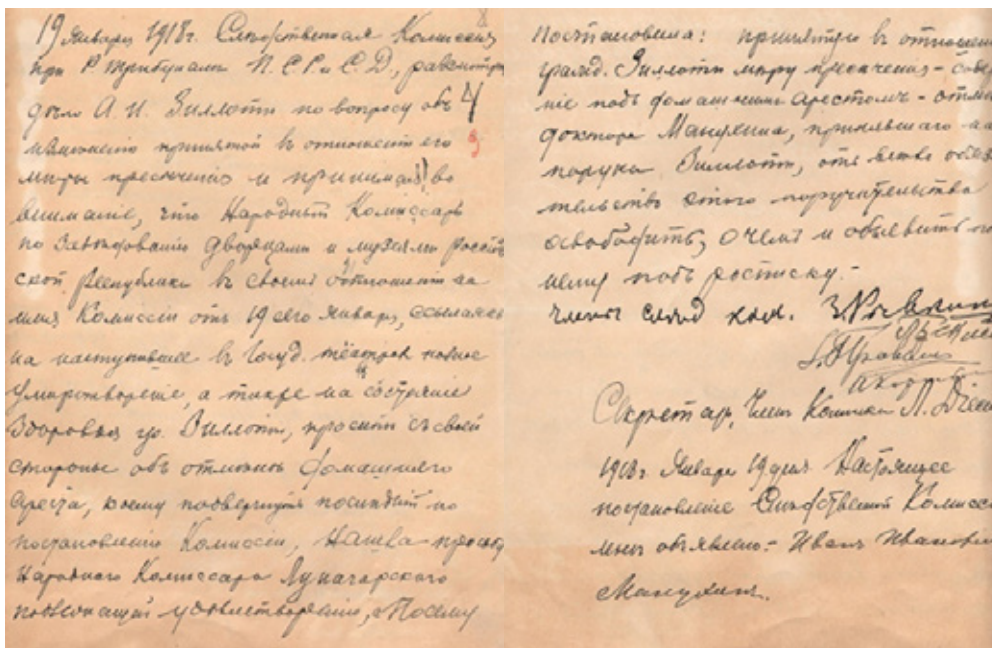 19 Января 1918 г. Следственная Комиссия
при Р. Трибунале П. С. Р. и С. Д., рассмотрев
дѣло А. И. Зилоти по вопросу объ
измѣненіи принятой въ отношеніи его
мѣры пресѣченія и принимая во
вниманіе, что Народный Комиссаръ
по Завѣдованію дворцами и музеями россій
ской Республики въ своемъ отношеніи на
имя Комиссіи отъ 19 сего Января, ссылаясь
на наступившее въ Госуд. театрах новое
умиротвореніе, а также на состояніе
здоровья гр. Зиллоти, проситъ съ своей
стороны объ отмѣнѣ домашняго
ареста, коему подвергнутъ послѣдній по
постановленію Комиссіи, Нашла просьбу
Народного Комиссара Луначарского
подлежащей удовлетворенію, а Посему
8
4
9
Постановила: принятую въ отношен
гражд. Зиллоти мѣру пресѣченія -
подъ домашнимъ арестомъ -
доктора Манухина, принявшаго на
поруки Зиллоти, отъ
этого поручительства
освободить, о чемъ и объявить
подъ росписку.-
Члены След. ком.
Секретарь, Членъ Комиссии
1918 г. Января 19 дня. Настоящее
постановленіе Слѣдственной Комисс
мнѣ объявлено:- Иванъ Иванович
Манухинъ.